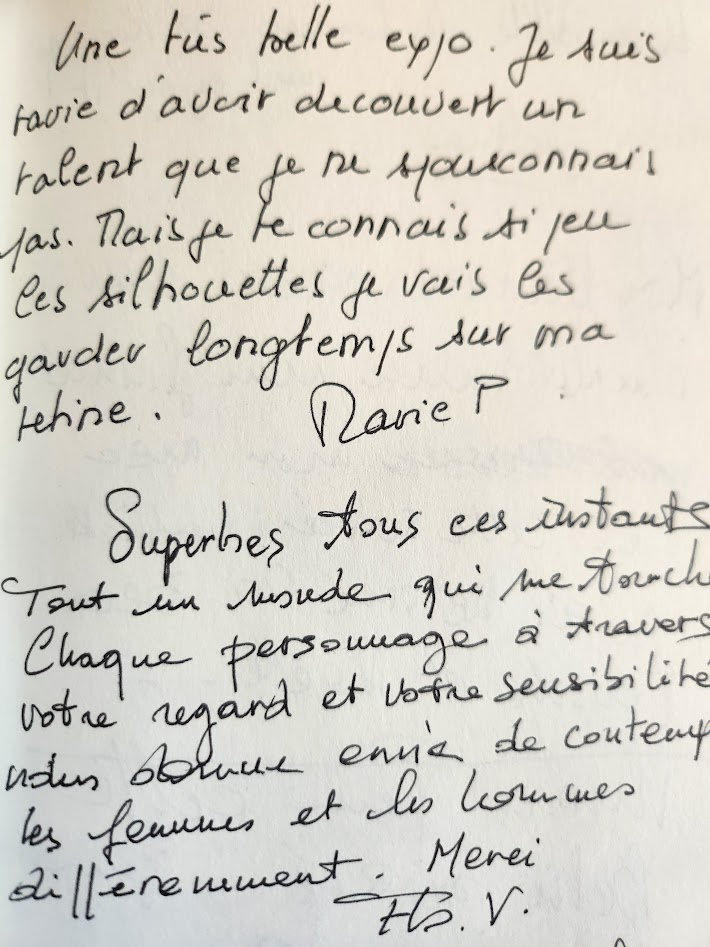 Une très belle expo. Je suis
ravie d'avoir decouvert un
talent que je ne soupconnais
pas. Mais je te connais si peu
les silhouettes je vais les
garder longtemps sur ma
retine.
Marie P
Superbes tous ces instants
Tout un monde qui me touch
Chaque personnage à travers
votre regard et votre sensibilité
nous donne envie de contemp
les femmes et les hommes
différemment. Merci
V.